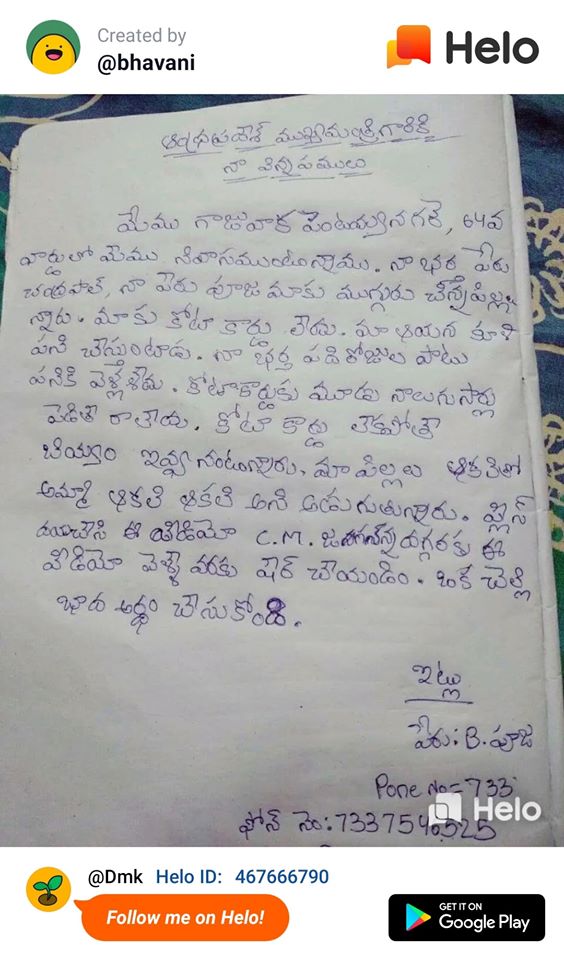 Created by
@bhavani
Helo
ఆంధ్రప్రదేశ్ ముఖ్యమంత్రిగారికి
నా విన్నపములు
మేము గాజువాక పెంటయ్యనగర్, 64వ
వార్డులో మేము నివాసముంటున్నాము. నా భర్త పేరు
చంద్రపాల్, నా పేరు పూజ మాకు ముగ్గురు చిన్నపిల్లలు
న్నారు. మాకు కోటా కార్డు లేదు. మా ఆయన కూలి
పని చేస్తుంటాడు. నా భర్త పది రోజుల పాటు
పనికి వెళ్ళలేదు. కోటాకార్డుకు మూడు నాలుగుసార్లు
పెడితే రాలేదు. కోటా కార్డు లేకపోతే
బియ్యం ఇవ్వనంటున్నారు, మా పిల్లలు ఆకలితో
అమ్మా ఆకలి ఆకలి అని అడుగుతున్నారు. ప్లీస్
దయచేసి ఈ వీడియో C.M. జగనన్న దగ్గరకు ఈ
వీడియో వెళ్ళే వరకు షేర్ చేయండి. ఒక చెల్లి
భాద అర్థం చేసుకోండి.
ఇట్లు
పేరు: B. పూజ
Pone No= 733
Helo
ఫోన్ నెం: 7337540525
@Dmk Helo ID: 467666790
Follow me on Helo!
GET IT ON
Google Play